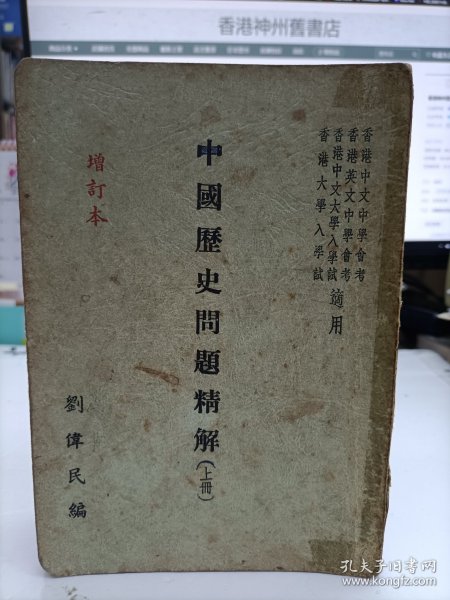 香港神州舊書店
香港中文中學會考
香港英文中學會考
香港中文大學入學試
香港大學入學試
適用
中國歷史問題精解(上冊)
增訂本
劉偉民編
孔夫子旧书网
www.kongfz.com